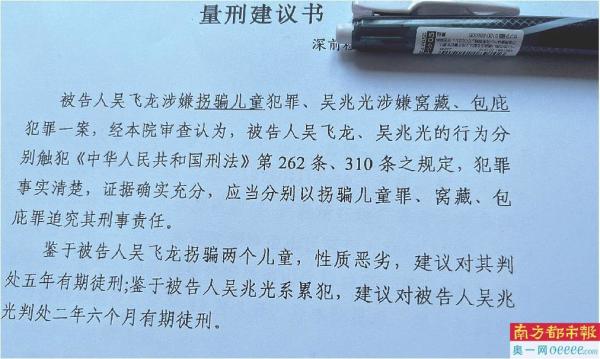 量刑建议书
深前
被告人吴飞龙涉嫌拐骗儿童犯罪、吴兆光涉嫌窝藏、包庇
犯罪一案，经本院审查认为，被告人吴飞龙、吴兆光的行为分
别触犯《中华人民共和国刑法》第 262 条、310 条之规定，犯罪
事实清楚，证据确实充分，应当分别以拐骗儿童罪、窝藏、包
庇罪追究其刑事责任。
鉴于被告人吴飞龙拐骗两个儿童，性质恶劣，建议对其判
处五年有期徒刑;鉴于被告人吴兆光系累犯，建议对被告人吴兆
光判处二年六个月有期徒刑。
南方都市報
奥一网 oeeee.com